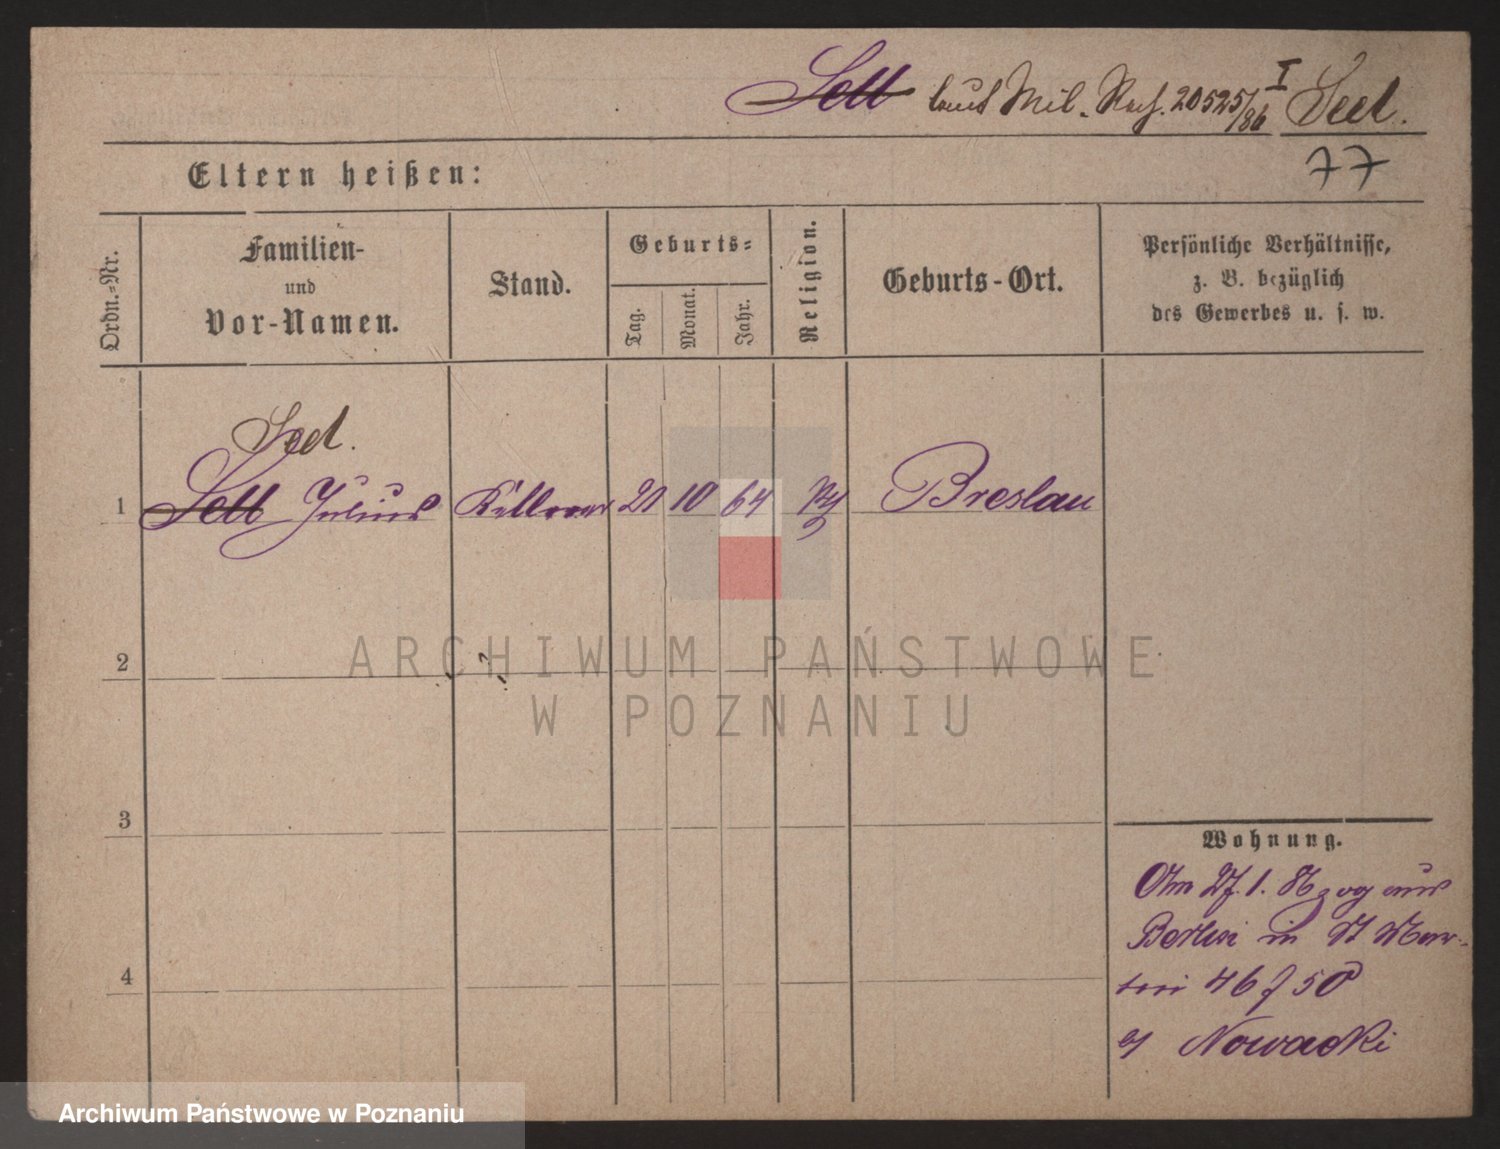 Sell laut Mil. Ref. 20525/86 I Seel.
77
Eltern heißen:
Ordn.-Nr.
Familien-
und
Vor-Namen.
Stand.
Geburts-
Tag.
Monat.
Jahr.
Religion.
Geburts-Ort.
Persönliche Verhältnisse,
z. B. bezüglich
des Gewerbes u. s. w.
Seel.
1 Sell Julius Kellner 21 10 64 Breslau
2
3
4
Wohnung.
Am 27. 1. 87 zog aus
Berlin in St Mar-
tin 46 f 50
Nowacki
ARCHIWUM PAŃSTWOWE
W POZNANIU
Archiwum Państwowe w Poznaniu